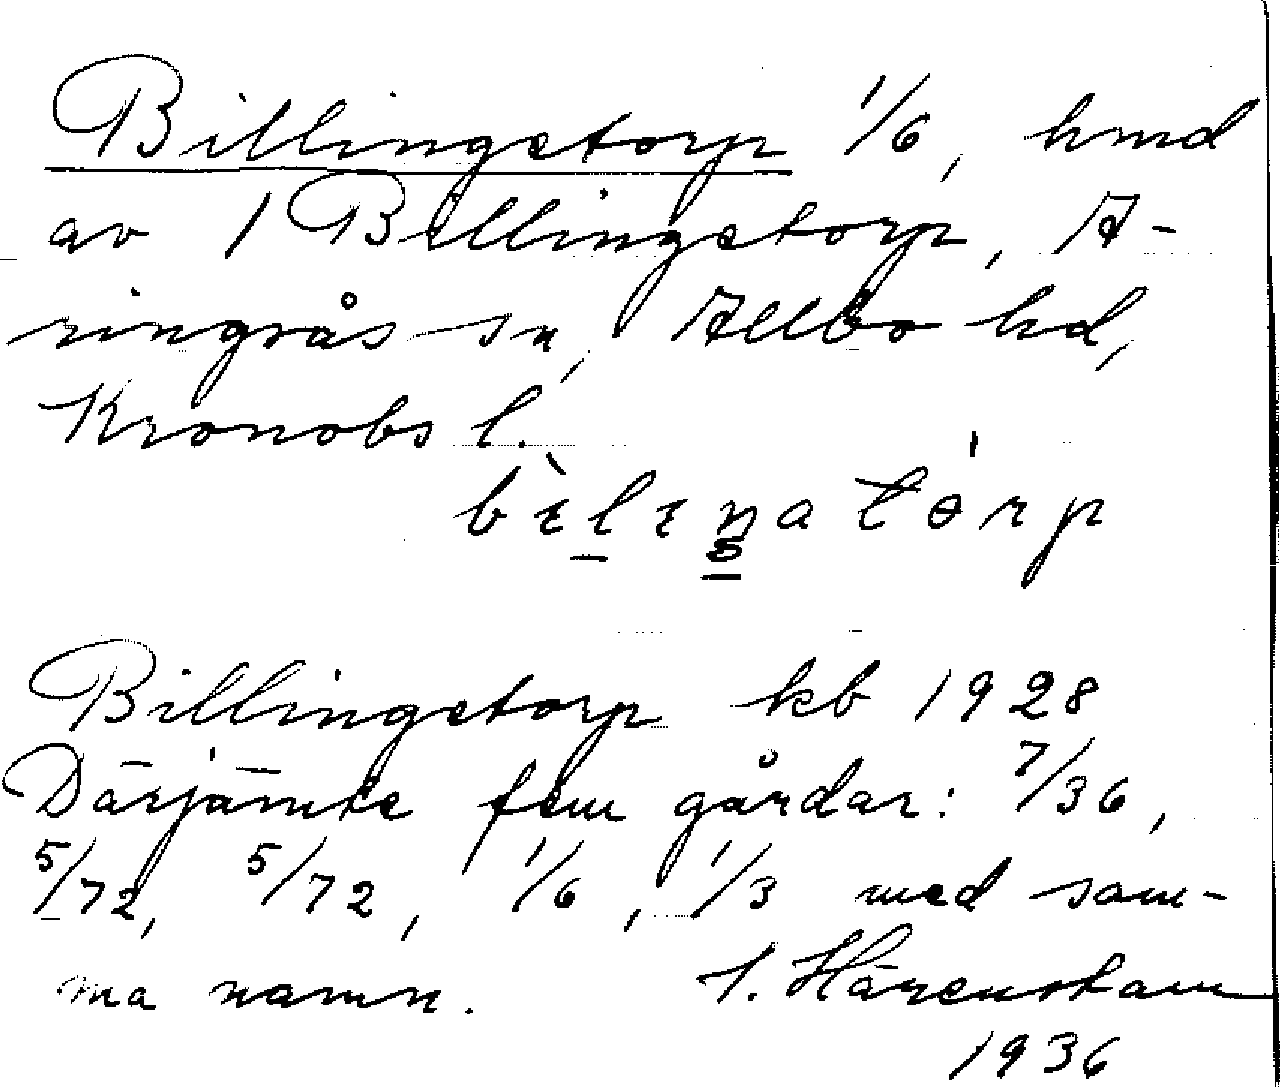 Billingstorp 1/6, hmd
av 1 Billingstorp, A-
ringsås sn, Allbo hd,
Kronobs l.
bìlıŋatórp
Billingstorp kb 1928
Därjämte fem gårdar: 7/36,
5/72, 5/72, 1/6, 1/3 med sam-
ma namn. I. Härenstam
1936